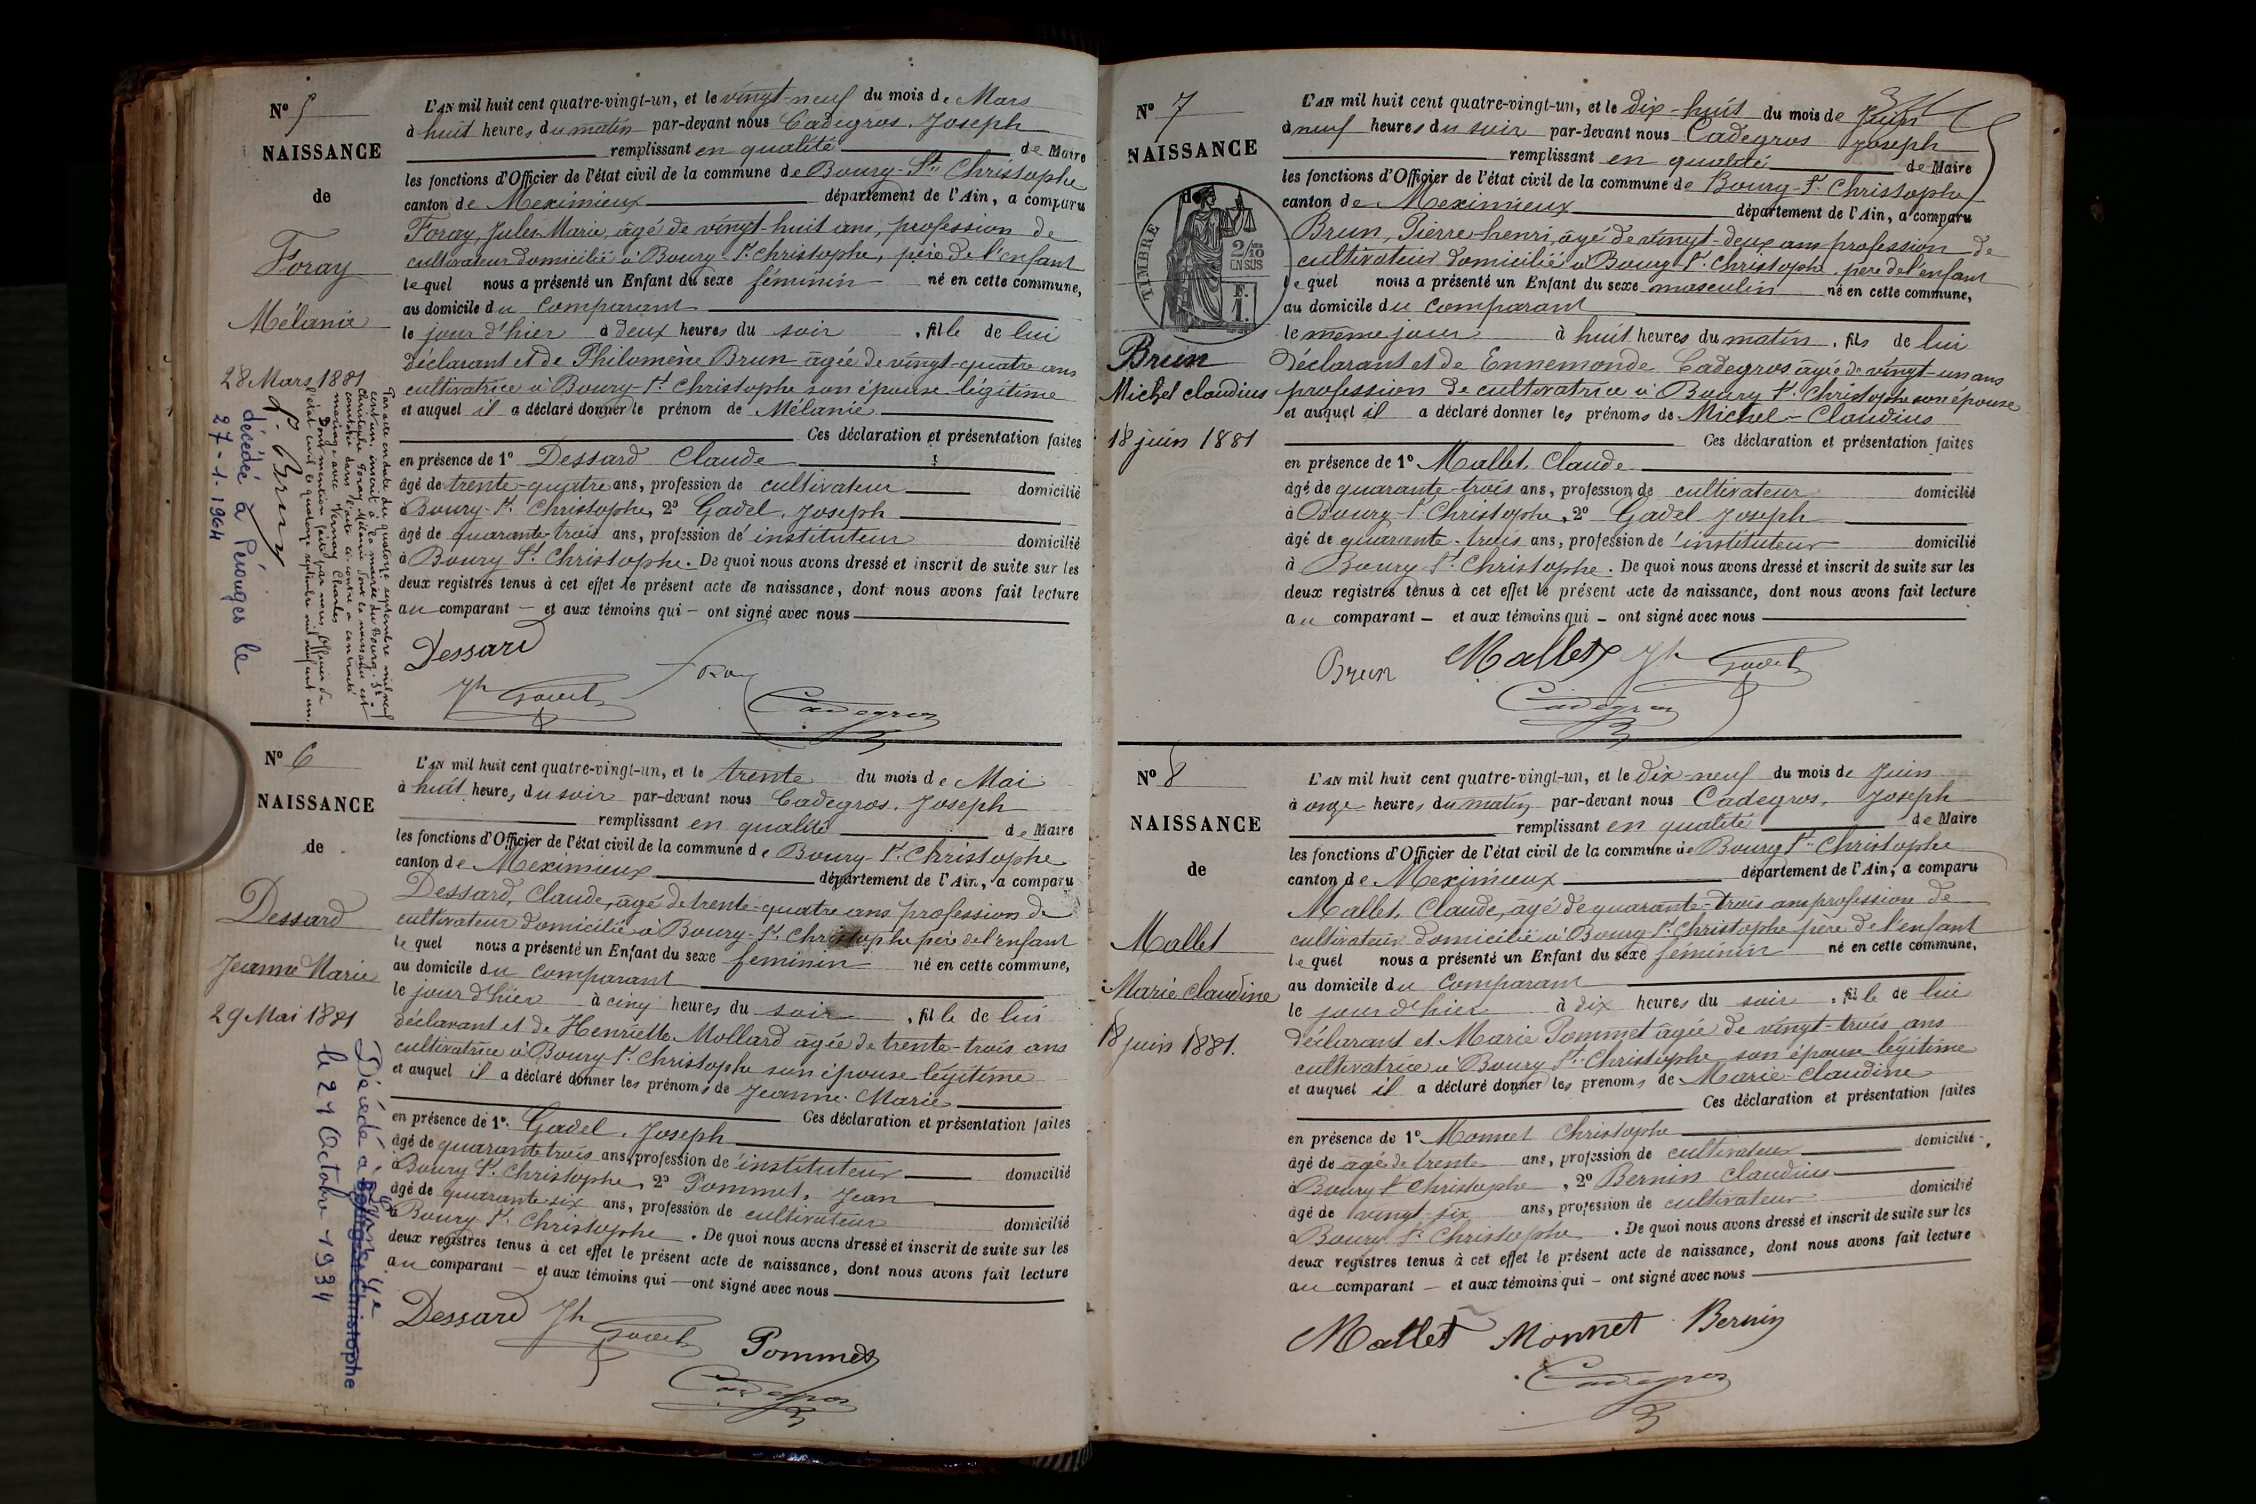 N° 5
NAISSANCE
de
Foray
Mélanie
28 Mars 1881
L'AN mil huit cent quatre-vingt-un, et le vingt-neuf du mois de Mars
à huit heures du matin par-devant nous Cadegros, Joseph
remplissant en qualité de Maire
les fonctions d'Officier de l'état civil de la commune de Bourg-St Christophe
canton de Meximieux département de l'Ain, a comparu
Foray, Jules-Marie, âgé de vingt-huit ans, profession de
cultivateur domicilié à Bourg-St Christophe, père de l'enfant
lequel nous a présenté un Enfant du sexe féminin né en cette commune,
au domicile du comparant
le jour d'hier à deux heures du soir, fille de lui
déclarant et de Philomène Brun âgée de vingt-quatre ans
cultivatrice à Bourg-St Christophe son épouse légitime
et auquel il a déclaré donner le prénom de Mélanie
Ces déclaration et présentation faites
en présence de 1° Dessard Claude
âgé de trente-quatre ans, profession de cultivateur domicilié
à Bourg-St Christophe, 2° Gadel, Joseph
âgé de quarante trois ans, profession d'instituteur domicilié
à Bourg St Christophe. De quoi nous avons dressé et inscrit de suite sur les
deux registres tenus à cet effet le présent acte de naissance, dont nous avons fait lecture
au comparant — et aux témoins qui — ont signé avec nous
Dessard
Jh Gadel
Foray
Cadegros
Par acte en date du quatorze septembre mil neuf
cent un, inscrit à la mairie du Bourg-St
Christophe Foray Mélanie dont la naissance est
constatée dans l'acte ci-contre a contracté
mariage avec Vernay Charles
Dont mention faite par nous, Officier de
l'état civil le quatorze septembre mil neuf cent un.
décédée à Pérouges le
27-1-1964
N° 6
NAISSANCE
de
Dessard
Jeanne Marie
29 Mai 1881
L'AN mil huit cent quatre-vingt-un, et le trente du mois de Mai
à huit heures du soir par-devant nous Cadegros, Joseph
remplissant en qualité de Maire
les fonctions d'Officier de l'état civil de la commune de Bourg-St Christophe
canton de Meximieux département de l'Ain, a comparu
Dessard, Claude, âgé de trente-quatre ans profession de
cultivateur domicilié à Bourg-St Christophe père de l'enfant
lequel nous a présenté un Enfant du sexe féminin né en cette commune,
au domicile du comparant
le jour d'hier à cinq heures du soir, fille de lui
déclarant et de Henriette Mollard âgée de trente-trois ans
cultivatrice à Bourg St Christophe son épouse légitime
et auquel il a déclaré donner les prénoms de Jeanne-Marie
Ces déclaration et présentation faites
en présence de 1° Gadel, Joseph
âgé de quarante trois ans, profession d'instituteur domicilié
à Bourg St Christophe, 2° Pommet, Jean
âgé de quarante six ans, profession de cultivateur domicilié
à Bourg-St Christophe. De quoi nous avons dressé et inscrit de suite sur les
deux registres tenus à cet effet le présent acte de naissance, dont nous avons fait lecture
au comparant — et aux témoins qui — ont signé avec nous
Dessard Jh Gadel
Pommet
Cadegros
Décédé à
le 21 Octobre 1934
N° 7
NAISSANCE
de
TIMBRE
2/10
EN SUS
F.
1.
Brun
Michel claudius
18 juin 1881
L'AN mil huit cent quatre-vingt-un, et le Dix-huit du mois de Juin
à neuf heures du soir par-devant nous Cadegros Joseph
remplissant en qualité de Maire
les fonctions d'Officier de l'état civil de la commune de Bourg-St Christophe
canton de Meximieux département de l'Ain, a comparu
Brun, Pierre-henri, âgé de vingt-deux ans profession de
cultivateur domicilié à Bourg St Christophe, père de l'enfant
lequel nous a présenté un Enfant du sexe masculin né en cette commune,
au domicile du comparant
le même jour à huit heures du matin, fils de lui
déclarant et de Ennemonde Cadegros âgée de vingt-un ans
profession de cultivatrice à Bourg St Christophe son épouse
et auquel il a déclaré donner les prénoms de Michel-Claudius
Ces déclaration et présentation faites
en présence de 1° Mallet Claude
âgé de quarante-trois ans, profession de cultivateur domicilié
à Bourg-St Christophe, 2° Gadel Joseph
âgé de quarante-trois ans, profession de l'instituteur domicilié
à Bourg-St Christophe. De quoi nous avons dressé et inscrit de suite sur les
deux registres tenus à cet effet le présent acte de naissance, dont nous avons fait lecture
au comparant — et aux témoins qui — ont signé avec nous
Brun Mallet Jh Gadel
Cadegros
N° 8
NAISSANCE
de
Mallet
Marie claudine
18 juin 1881.
L'AN mil huit cent quatre-vingt-un, et le Dix-neuf du mois de Juin
à onze heures du matin par-devant nous Cadegros, Joseph
remplissant en qualité de Maire
les fonctions d'Officier de l'état civil de la commune de Bourg St Christophe
canton de Meximieux département de l'Ain, a comparu
Mallet, Claude, âgé de quarante-trois ans profession de
cultivateur domicilié à Bourg St Christophe père de l'enfant
lequel nous a présenté un Enfant du sexe féminin né en cette commune,
au domicile du Comparant
le jour d'hier à dix heures du soir, fille de lui
déclarant et Marie Pommet âgée de vingt-trois ans
cultivatrice à Bourg St Christophe son épouse légitime
et auquel il a déclaré donner les prénoms de Marie-Claudine
Ces déclaration et présentation faites
en présence de 1° Monnet Christophe
âgé de âgé de trente ans, profession de cultivateur domicilié
à Bourg St Christophe, 2° Bernin Claudius
âgé de vingt-six ans, profession de cultivateur domicilié
à Bourg St Christophe. De quoi nous avons dressé et inscrit de suite sur les
deux registres tenus à cet effet le présent acte de naissance, dont nous avons fait lecture
au comparant — et aux témoins qui — ont signé avec nous
Mallet Monnet Bernin
Cadegros